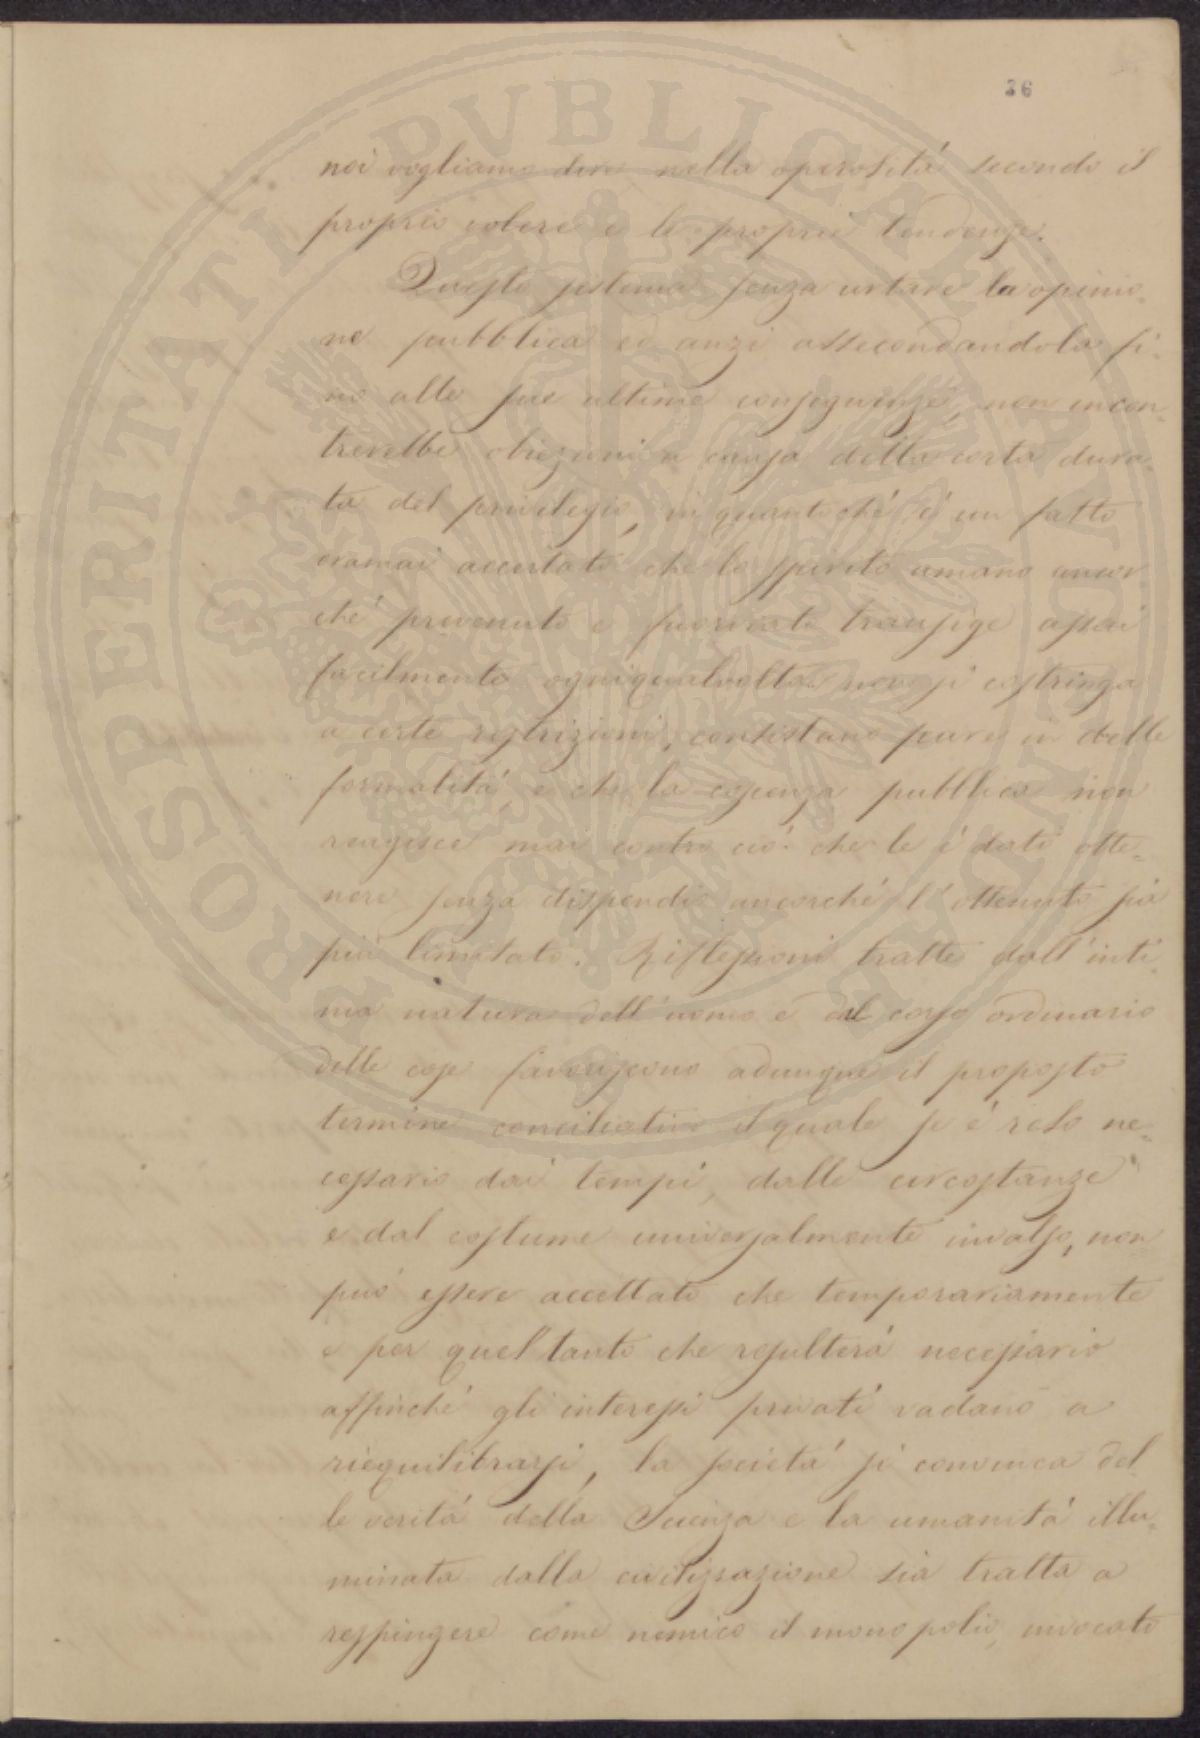 36
noi vogliamo dire nella operosità secondo il
proprio volere e le proprie tendenze.
Questo sistema senza urtare la opinio-
ne pubblica ed anzi assecondandola fi-
no alle sue ultime conseguenze, non incon-
trerebbe obiezioni a causa della corta dura-
ta del privilegio, in quanto chè è un fatto
oramai accertato che lo spirito umano ancor-
chè prevenuto e fuorviato transige assai
facilmente ogniqualvolta non si costringa
a certe restrizioni, consistano pure in delle
formalità, e che la coscienza pubblica non
reagisce mai contro ciò che le è dato otte-
nere senza dispendio ancorchè l'ottenuto sia
più limitato. Riflessioni tratte dall'inti-
ma natura dell'uomo e dal corso ordinario
delle cose favoriscono adunque il proposto
termine conciliativo il quale se è reso ne-
cessario dai tempi, dalle circostanze
e dal costume universalmente invalso, non
può essere accettato che temporariamente
e per quel tanto che resulterà necessario
affinchè gli interessi privati vadano a
riequilibrarsi, la società si convinca del-
le verità della Scienza e la umanità illu-
minata dalla civilizzazione sia tratta a
respingere come nemico il monopolio, invocato
PROSPERITATI PVBLICAE AVGENDAE